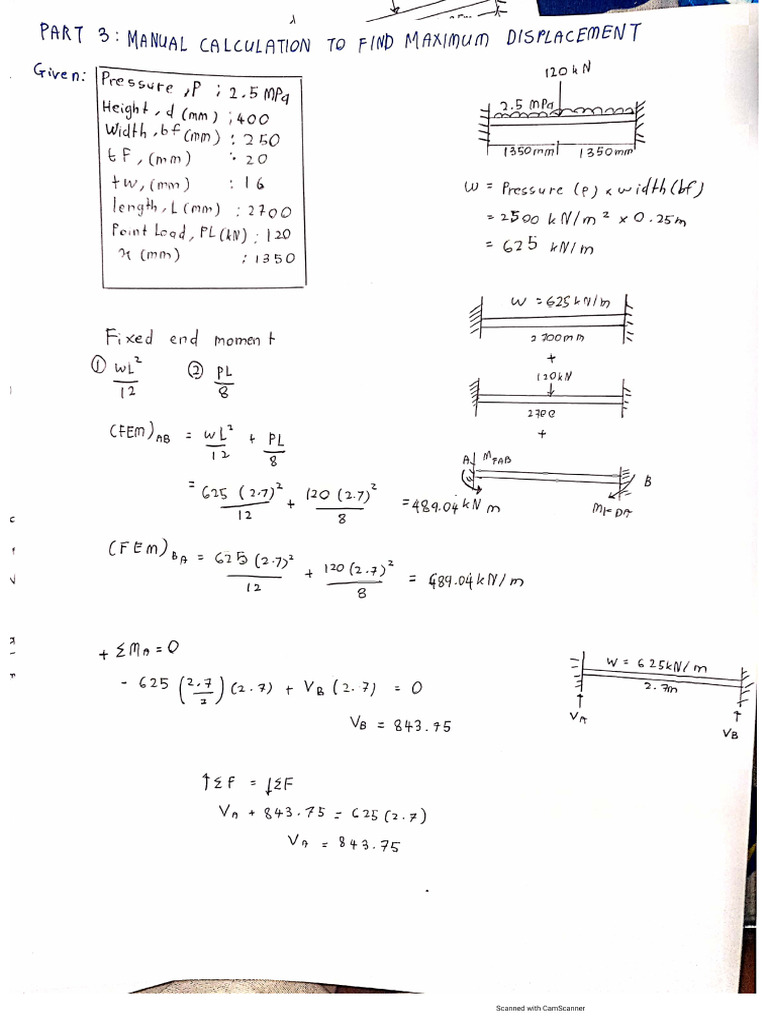 PART 3: MANUAL CALCULATION TO FIND MAXIMUM DISPLACEMENT
Given:
Pressure, P : 2.5 MPa
Height, d (mm) : 400
Width, bf (mm) : 250
tF, (mm) : 20
tw, (mm) : 16
length, L (mm) : 2700
Point Load, PL (kN) : 120
x (mm) : 1350
120 kN
2.5 MPa
1350mm 1350mm
W = Pressure (P) x width (bf)
= 2500 kN/m² x 0.25m
= 625 kN/m
W = 625kN/m
2700mm
+
120kN
2700
+
A MFAB
B
Fixed end moment
① wL²/12 ② PL/8
(FEM)AB = wL²/12 + PL/8
= 625 (2.7)²/12 + 120 (2.7)²/8 = 489.04 kN m
(FEM)BA = 625 (2.7)²/12 + 120 (2.7)²/8 = 489.04 kN/m
+ ΣMA = 0
- 625 (2.7/2) (2.7) + VB (2.7) = 0
VB = 843.75
W = 625kN/m
2.7m
VA
VB
↑ΣF = ↓ΣF
VA + 843.75 = 625 (2.7)
VA = 843.75
Scanned with CamScanner